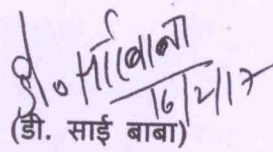 डी. साईबाबा
16/2/17
(डी. साई बाबा)